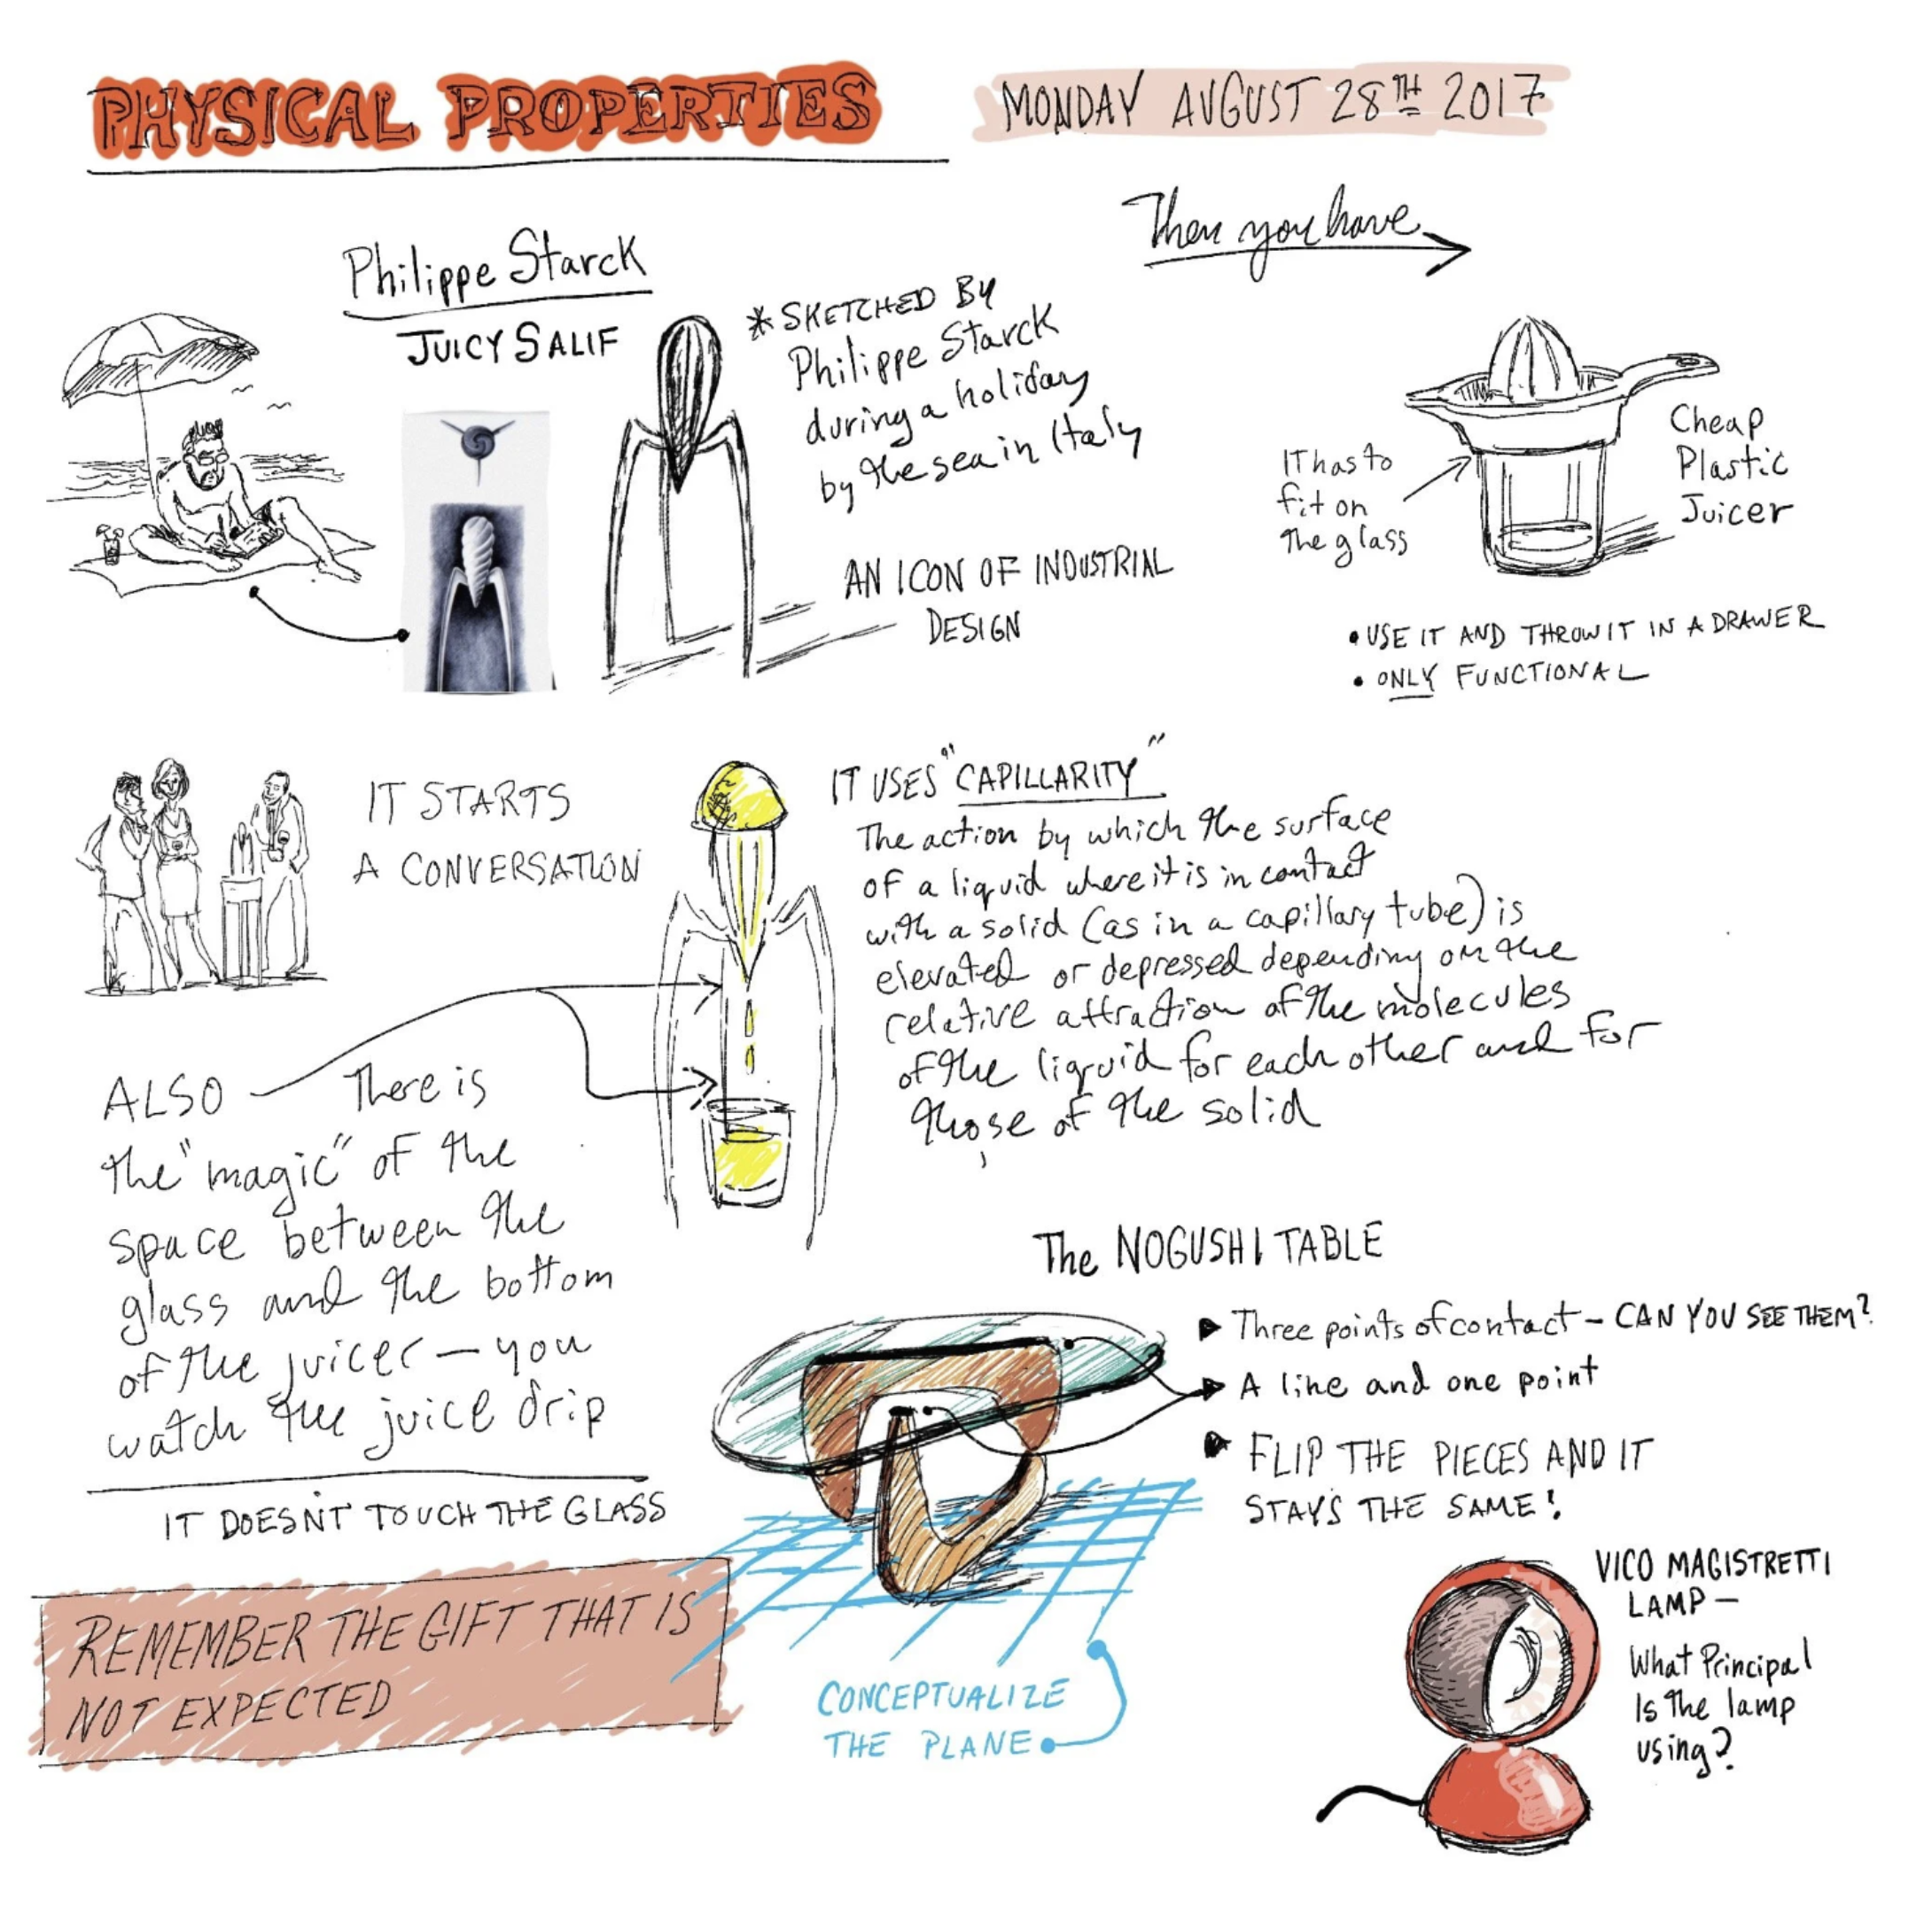 PHYSICAL PROPERTIES
MONDAY AUGUST 28TH 2017
Philippe Starck
JUICY SALIF
* SKETCHED BY
Philippe Starck
during a holiday
by the sea in Italy
AN ICON OF INDUSTRIAL
DESIGN
Then you have
IT has to
fit on
the glass
Cheap
Plastic
Juicer
• USE IT AND THROW IT IN A DRAWER
• ONLY FUNCTIONAL
IT STARTS
A CONVERSATION
IT USES "CAPILLARITY"
The action by which the surface
of a liquid where it is in contact
with a solid (as in a capillary tube) is
elevated or depressed depending on the
relative attraction of the molecules
of the liquid for each other and for
those of the solid
ALSO There is
the "magic" of the
space between the
glass and the bottom
of the juicer — you
watch the juice drip
IT DOESN'T TOUCH THE GLASS
REMEMBER THE GIFT THAT IS
NOT EXPECTED
The NOGUSHI TABLE
Three points of contact - CAN YOU SEE THEM?
A line and one point
FLIP THE PIECES AND IT
STAY'S THE SAME!
CONCEPTUALIZE
THE PLANE
VICO MAGISTRETTI
LAMP —
What Principal
Is the lamp
using?